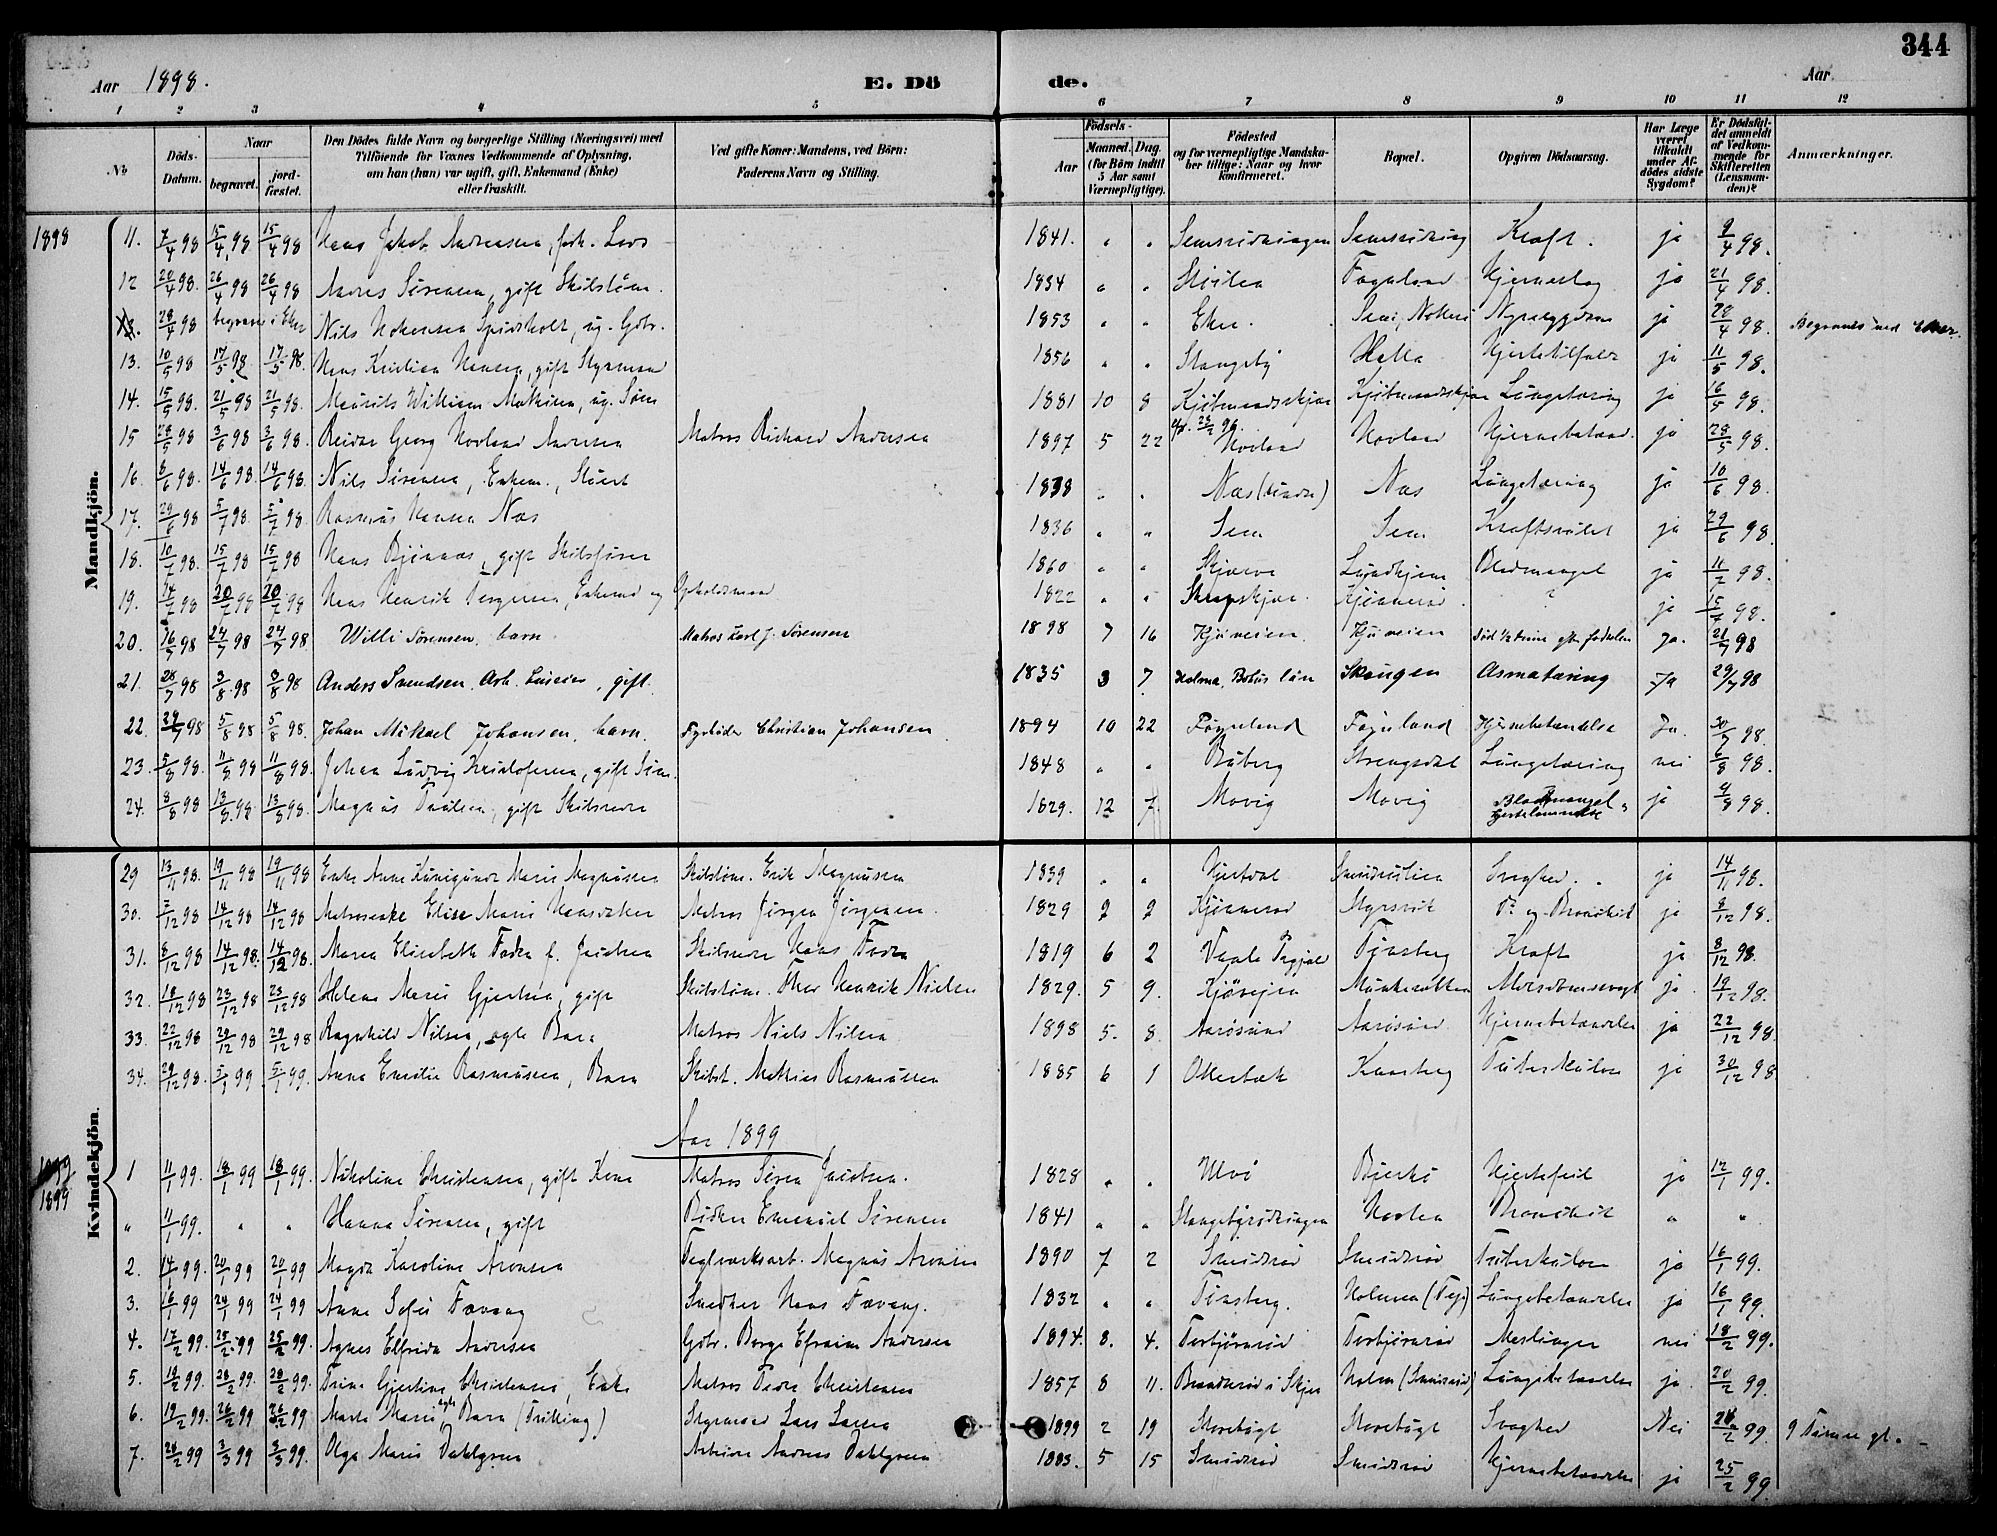 344
Aar 1898. E. Dö de. Aar
1 2 3 4 5 6 7 8 9 10 11 12
No
Döds-Datum.
Naar
begravet.
jord-fæstet.
Den Dödes fulde Navn og borgerlige Stilling (Næringsvei) med
Tilföiende for Voxnes Vedkommende af Oplysning,
om han (hun) var ugift, gift, Enkemand (Enke)
eller fraskilt.
Ved gifte Koner: Mandens, ved Börn:
Faderens Navn og Stilling.
Födsels-
Aar
Maaned. Dag.
(for Börn indtil
5 Aar samt
Værnepligtige).
Födested
og for værnepligtige Mandska-
ber tillige: Naar og hvor
konfirmeret.
Bopæl.
Opgiven Dödsaarsag.
Har Læge
været
tilkaldt
under Af-
dödes sidste
Sygdom?
Er Dödsfal-
det anmeldt
af Vedkom-
mende for
Skifteretten
(Lensman-
den)?
Anmærkninger.
1898
Mandkjön.
11. 7/4 98 15/4 98 15/4 98 Hans Jakob Andreassen, forh. Lods 1841. " " Semsridningen Semsridning Kræft. ja 9/4 98.
12 20/4 98. 26/4 98 26/4 98 Mares Sörensen, gift Skibstöm. 1834 " " Föynland ja 21/4 98.
28/4 98 begraves i Eker Nils ug. Gdbr. 1853 " " Eker. Sem, Nygesygdom ja 28/4 98. Begraves ved Eker.
13. 10/5 98 17/5 98 17/5 98. Hans Kristian Hansen, gift Styrmand 1856 " " Stangeby Hella Hjertetilfælde ja 11/5 98.
14. 15/5 98. 21/5 98 21/5 98. Mauritz William Mathisen, ug. Söm 1881 10 8 Kjöbmandskjær Kjöbmandskjær Lungetæring ja 16/5 98.
15 28/5 98 3/6 98 3/6 98. Reidar Georg Hovland Andersen Matros Richard Andersen 1897 5 22 Hovland Hovland Hjernebetænd. ja 28/5 98.
16. 8/6 98. 14/6 98 14/6 98. Nils Sörensen, Enkem., 1838 " " Næs (Lindre) Næs Lungetæring ja 10/6 98.
17. 29/6 98 5/7 98. 5/7 98. Rasmus Hansen Næs 1836 " " Sem Sem ja 29/6 98.
18. 10/7 98. 15/7 98 15/7 98 Hans Bjönnæs, gift Skibsförer 1860 " " Skjærve Blodmangel ja 11/7 98.
19. 14/7 98 20/7 98 20/7 98 Hans Henrik Jörgensen, Enkemd og Opholdsmand 1822 " " Kjönneröd ? ja 15/7 98.
20. 16/7 98 24/7 98 24/7 98 Willi Sörensen, barn. Matros Karl J. Sörensen 1898 7 16 Kjuveien. Kjuveien Död ½ time eft. födselen ja. 21/7 98
21. 28/7 98 3/8 98 3/8 98 Anders Svendsen, Arb. , gift. 1835 3 7 Holma, Bohus län Skaugen Asmatæring Ja 29/7 98
22. 29/7 98 5/8 98 5/8 98. Johan Mikael Johansen, barn. Fyrböder Christian Johansen 1894 10 22 Föynland Föynland Hjernebetændelse Ja. 30/7 98.
23. 5/8 98. 11/8 98 11/8 98. Johan Ludvig Kristofersen, gift Söm. 1848 " " Buberg Strengsdal Lungetæring nei 6/8 98.
24. 8/8 98 13/8 98 13/8 98. Magnus Paulsen, gift Skibsrere 1829. 12 7 Movig Movig Blodmangel, Hjertelammelse ja 9/8 98.
Kvindekjön.
29 13/11 98. 19/11 98 19/11 98 Enke Anne Kunigunde Marie Magnussen Skibstöm. Erik Magnussen 1839 " " Hjertdal Svaghed. ja 14/11 98.
30. 5/12 98 14/12 98 14/12 98 Matrosenke Elise Marie Matros Jörgen Jörgensen. 1829 2 2 Kjönneröd Myrsvik Do og Bronchit ja 8/12 98.
31. 8/12 98 14/12 98. 14/12 98. Maren Elisabeth Foden f. Jacobsen Skibsrere Hans Foden 1819 6 2 Tönsberg Kræft ja 8/12 98.
32. 18/12 98 23/12 98 23/12 98 Helene Marie Gjertsen, gift Skibstöm. Thor Henrik Nielsen 1829. 5 9. Kjövejen Munkerekken ja. 19/12 98.
33. 22/12 98 29/12 98 29/12 98 Ragnhild Nilsen, egte Barn Matros Niels Nilsen 1898 5. 8. Aarösund Aarösund Hjernebetændelse ja 22/12 98.
34. 29/12 98. 5/1 99 5/1 99. Anna Emilie Rasmussen, Barn Skibst. Mathias Rasmussen 1885 6 1 Ollerbæk Kaasberg Tuberkulose ja 30/12 98
Aar 1899
1899
1899
1 11/1 99. 18/1 99 18/1 99. Nikoline Christensen, gift Kone Matros Sören Jacobsen. 1828 " " Ulvö Bjerkö Hjertefeil ja 12/1 99.
" 11/1 99. " " Hanna Sörensen, gift Bödker Emanuel Sörensen 1841 " " Stangebyrödningen Bronchit " "
2. 14/1 99. 20/1 99 20/1 99 Magda Karoline Aronsen Teglværksarb. Magnus Aronsen 1890 7 2 Smidsröd Smidsröd Tuberkulose ja 16/1 99.
3. 16/1 99 24/1 99 24/1 99 Anne Sofie Favang Snedker Hans Favang. 1832 " " Tönsberg. Holmen (Tej) Lungebetændelse ja 16/1 99.
4. 17/2 99. 25/2 99 25/2 99. Agnes Elfrida Andersen Gdbr. Börge Efraim Andersen 1894. 8. 4. Torbjörnröd Torbjörnröd Meslinger nei 18/2 99.
5. 19/2 99. 28/2 99. 28/2 99. Trine Gjertine Christensen, Enke Matros Peder Christensen 1857 8 11. Holmen (Smidsröd) Lungebetændelse ja. 20/2 99.
6. 19/2 99. 26/2 99 26/2 99 Marta Marie egte Barn (Trilling) Styrmand Lars Larsen 1899 2 19 Storebögt Storebögt Svaghed Nei 24/2 99 9 Timer gl.
7. 24/2 99 3/3 99 3/3 99. Olga Marie Dahlgren Arbeider Andreas Dahlgren 1883. 5 15 Smidsröd Smidsröd Hjernebetændelse ja 25/2 99.